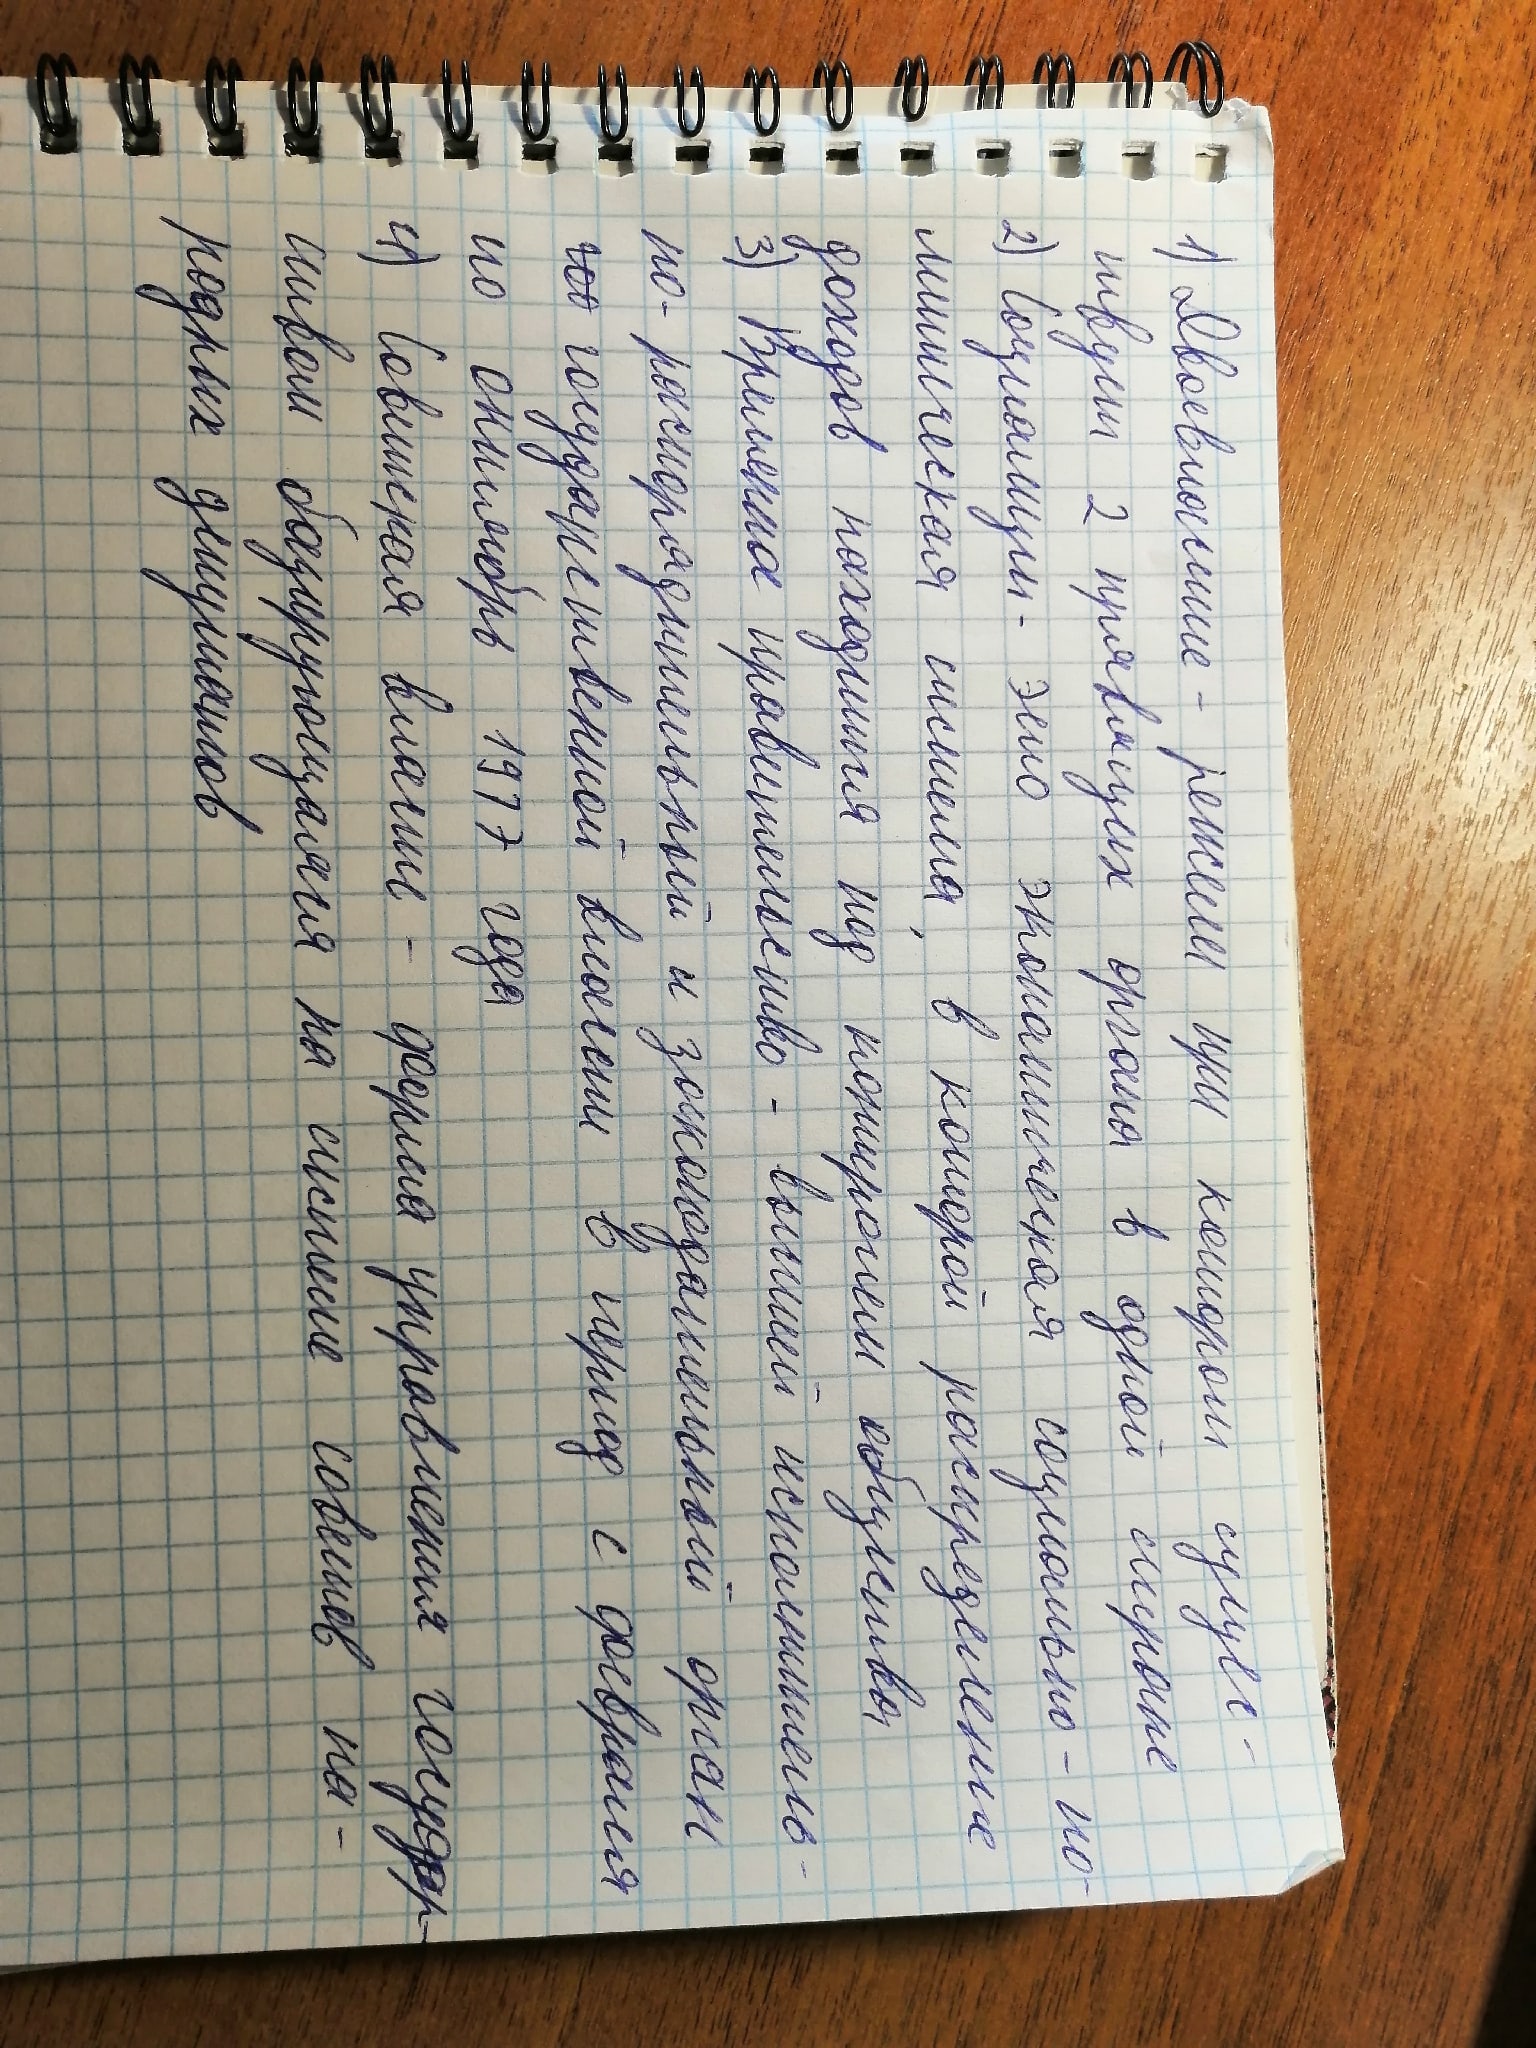 1) Двоевластие - режим при котором сущес-
твует 2 правящих органа в одной стране
2) Социализм - это экономическая социально - по-
литическая система, в которой распределение
доходов находится под контролем общества
3) Временное правительство - высший исполнитель-
но - распорядительный и законодательный орган
гос государственной власти в период с февраля
по октябрь 1977 года
4) Советская власть - форма управления государ-
ством базирующаяся на системе советов на-
родных депутатов